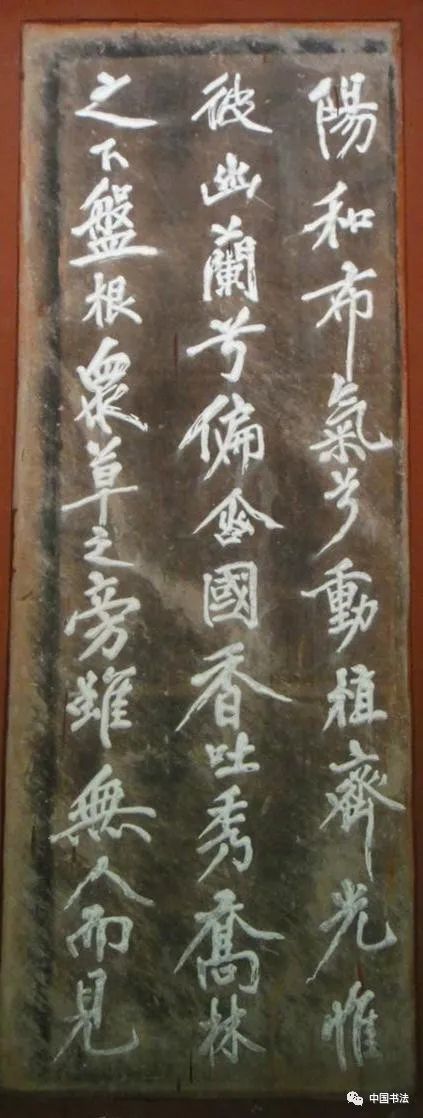 陽和布氣兮動植齊光惟
彼幽蘭兮偏含國香吐秀喬林
之下盤根衆草之旁雖無人而見
中国书法